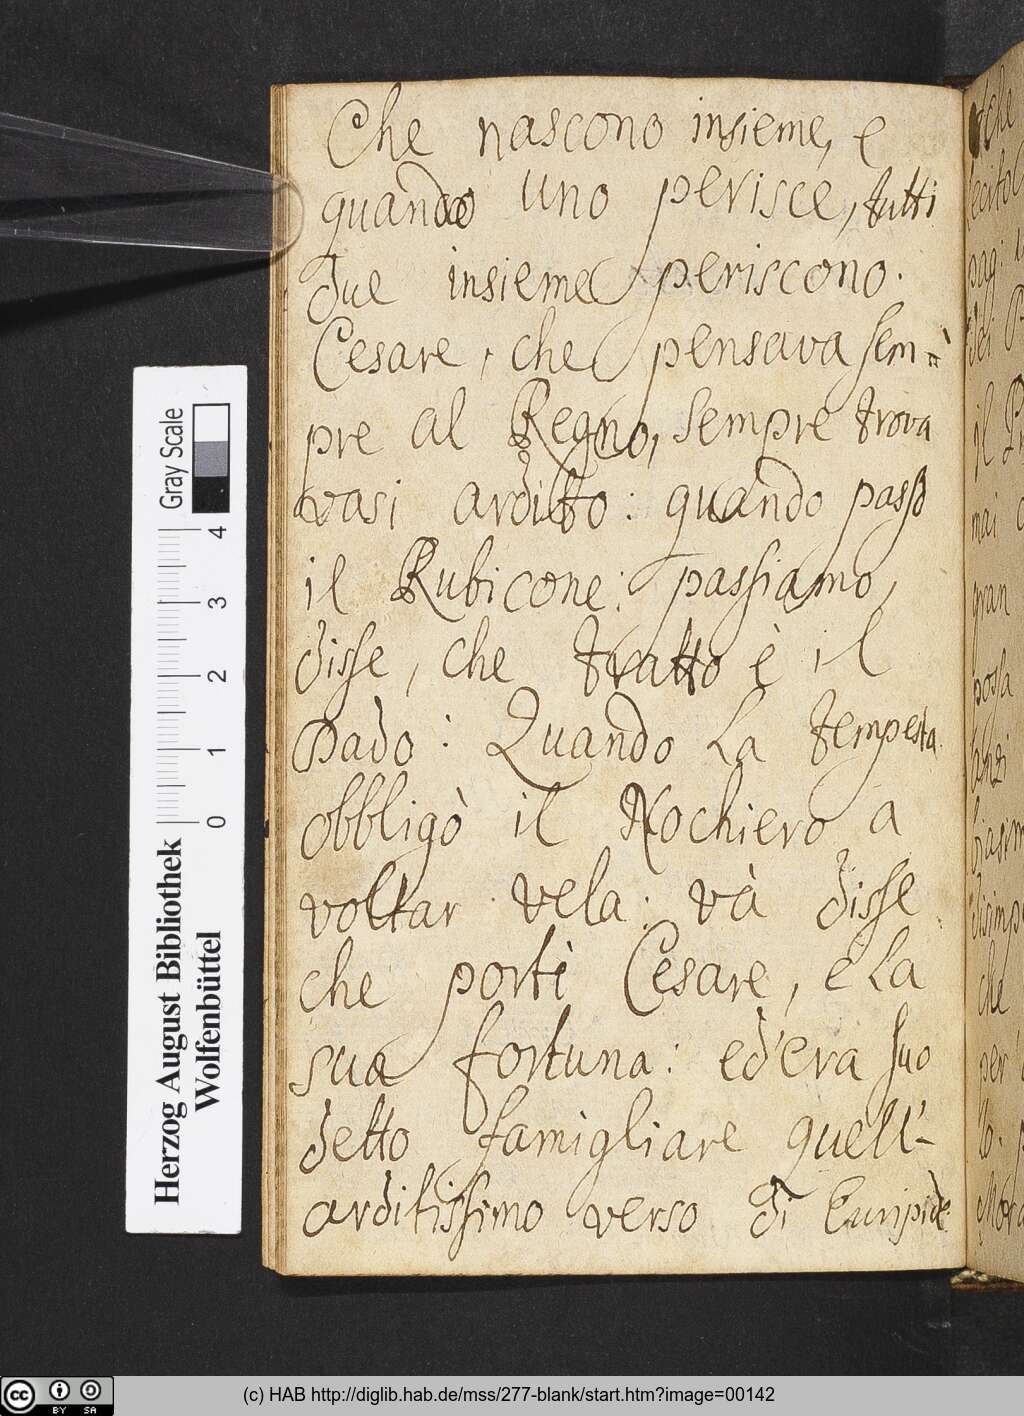 Che nascono insieme, e
quando uno perisce, tutti
due insieme periscono.
Cesare, che pensava sem=
pre al Regno, sempre trova
vasi ardito: quando passò
il Rubicone: passiamo,
disse, che tratto è il
Dado: Quando la tempesta
obbligò il Nochiero a
voltar vela: và disse
che porti Cesare, e la
sua fortuna: ed'era suo
detto famigliare quell'-
arditissimo verso di Euripide
che
pag:
dei
il
mai
gran
possa
anzi
che
per
Gray Scale
4
3
2
1
0
Herzog August Bibliothek
Wolfenbüttel
cc BY SA
(c) HAB http://diglib.hab.de/mss/277-blank/start.htm?image=00142